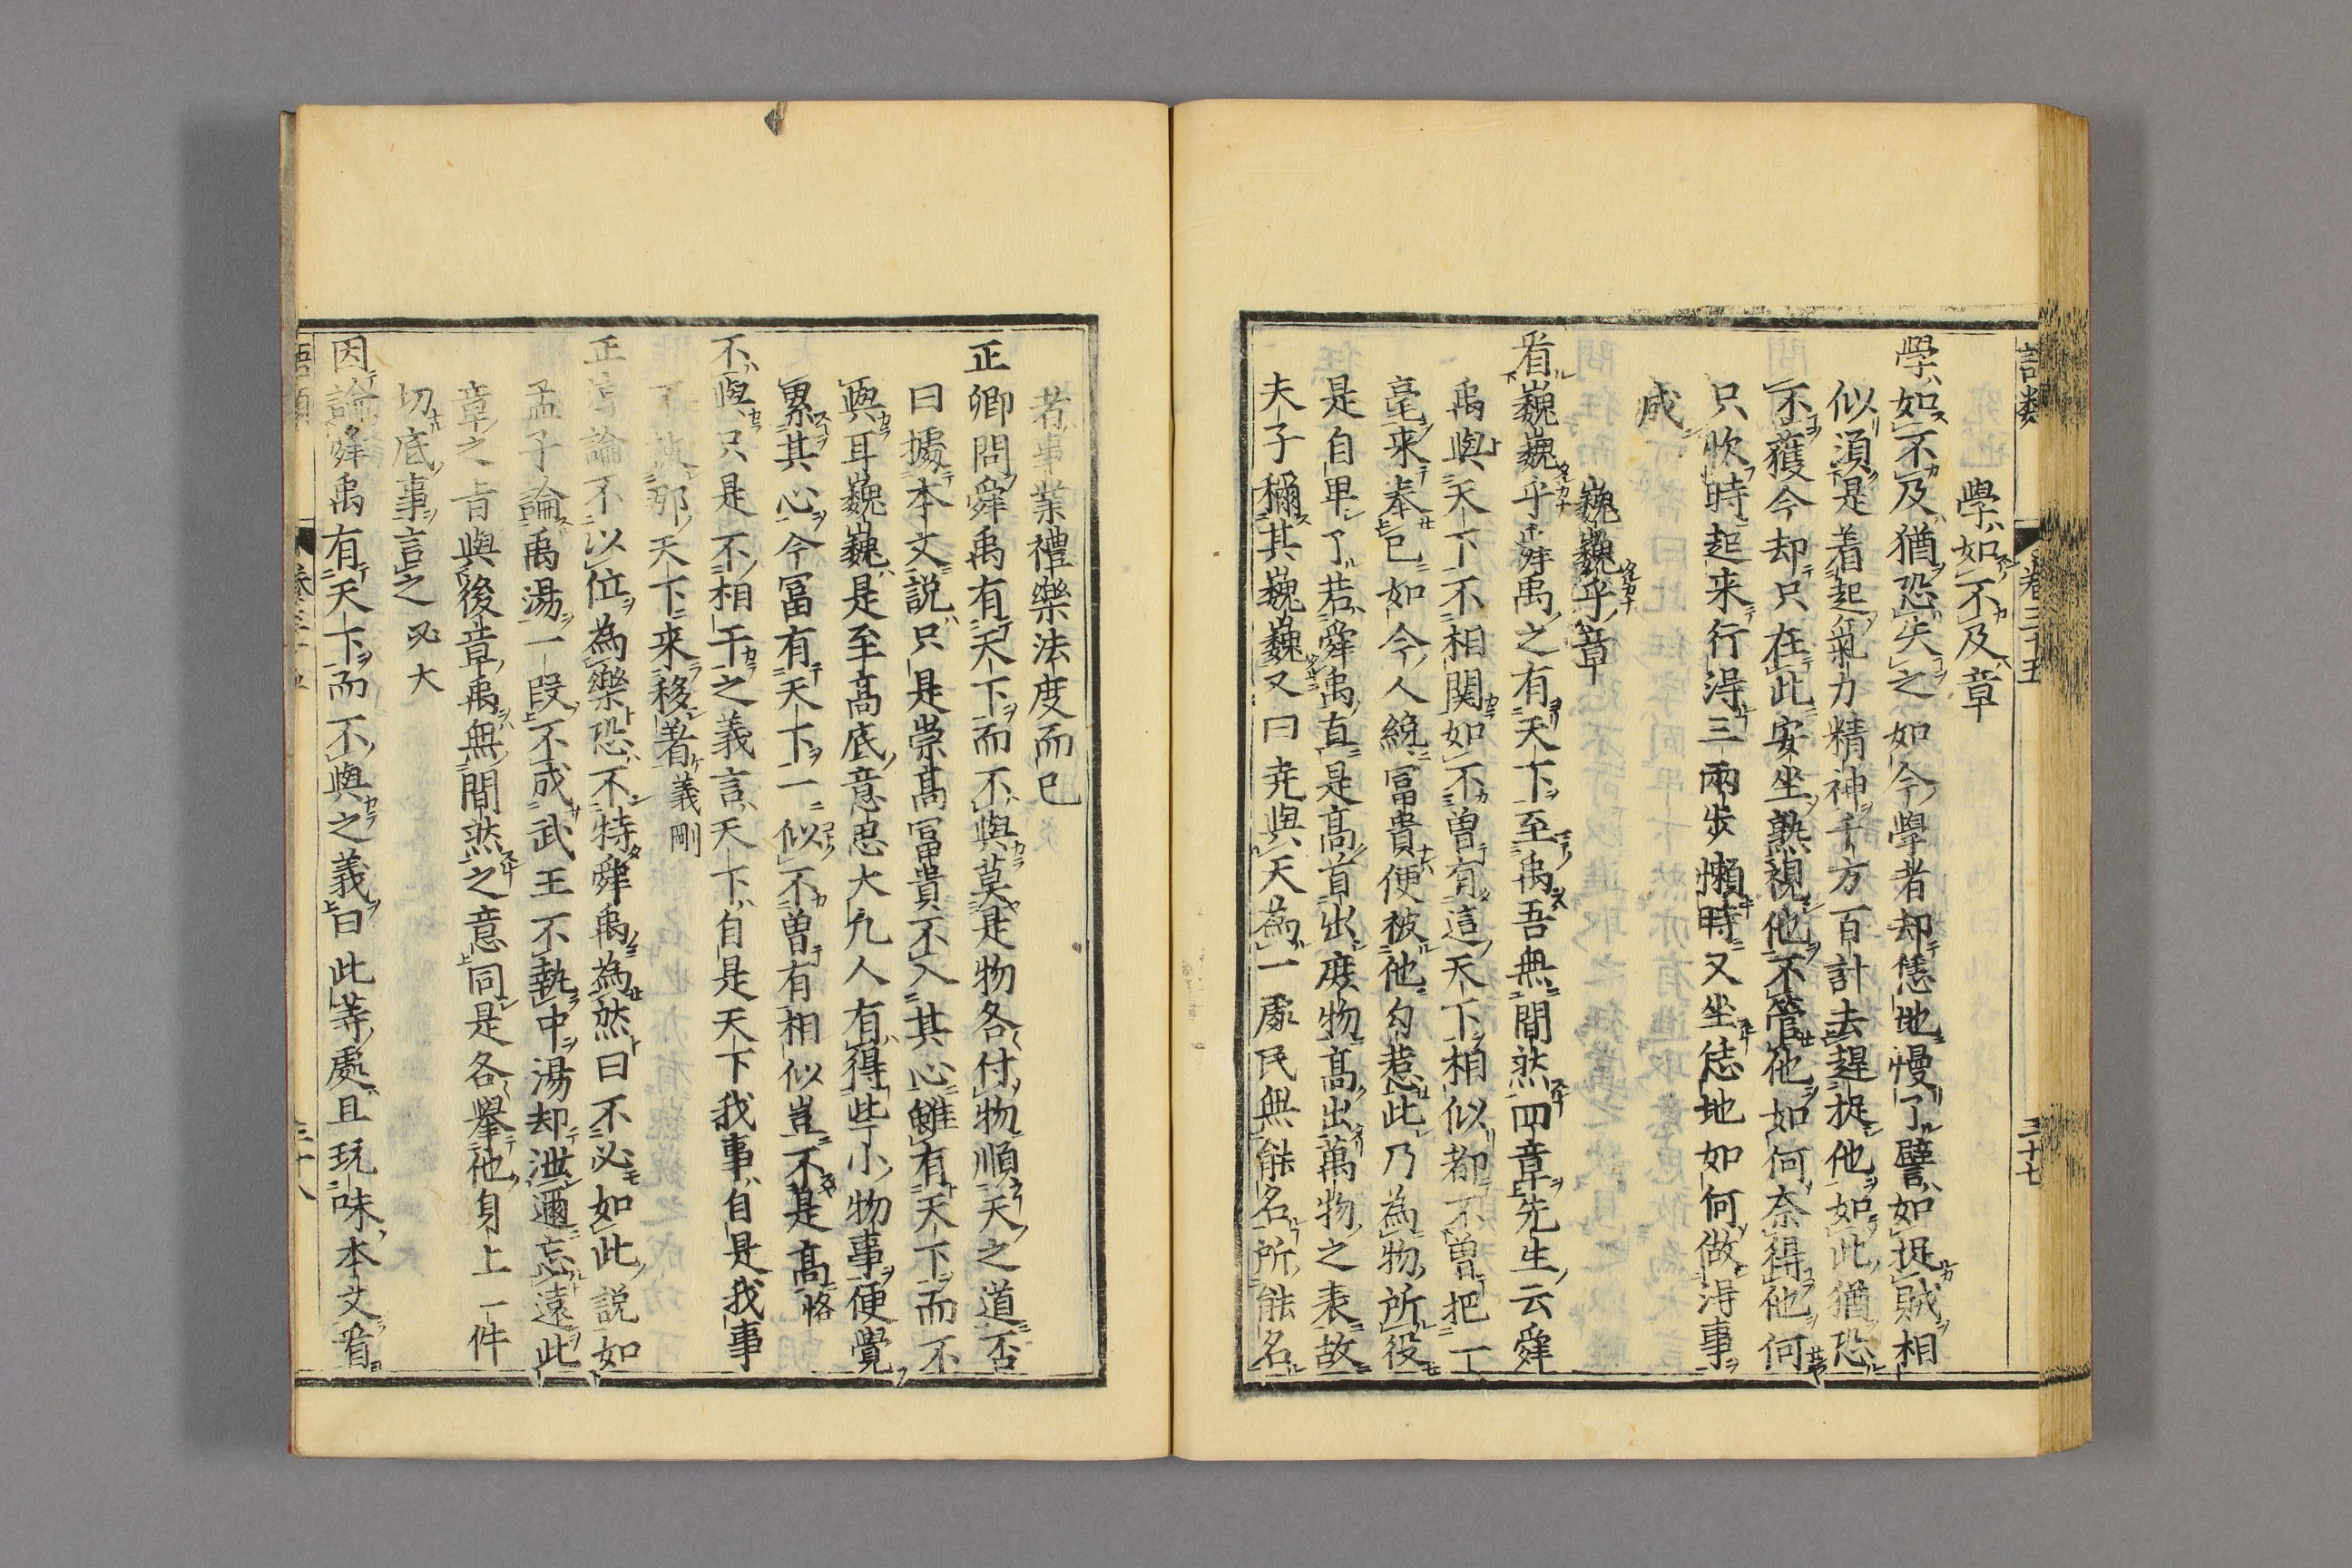 語類 卷三十五 三十七
學如不及章
學如不及猶恐失之如今學者却恁地慢了譬如捉賊相
似須是着起氣力精神千方百計去趕捉他如此猶恐
不獲今却只在此安坐熟視他不管他如何奈得他何
只忺時起来行得三兩步懶時又坐恁地如何做得事
成
巍巍乎章
看巍巍乎舜禹之有天下至禹吾無間然四章先生云舜
禹與天下不相関如不曽有這天下相似都不曽把一
毫来奉己如今人纔富貴便被他勾惹此乃為物所役
是自卑了若舜禹直是高首出庻物高出萬物之表故
夫子稱其巍巍又曰尭與天為一處民無能名所能名
者事業禮樂法度而已
正卿問舜禹有天下而不與莫是物各付物順天之道否
曰據本文説只是崇高冨貴不入其心雖有天下而不
與耳巍巍是至高底意思大凡人有得些小物事便覺
累其心今冨有天下一似不曽有相似豈不是高 恪
不與只是不相干之義言天下自是天下我事自是我事
不被那天下来移着 義剛
正淳論不以位為樂恐不特舜禹為然曰不必如此説如
孟子論禹湯一段不成武王不執中湯却泄邇忘遠此
章之旨與後章禹無間然之意同是各舉他身上一件
切底事言之 大
因論舜禹有天下而不與之義曰此等處且玩味本文看
語類 卷三十五 三十八